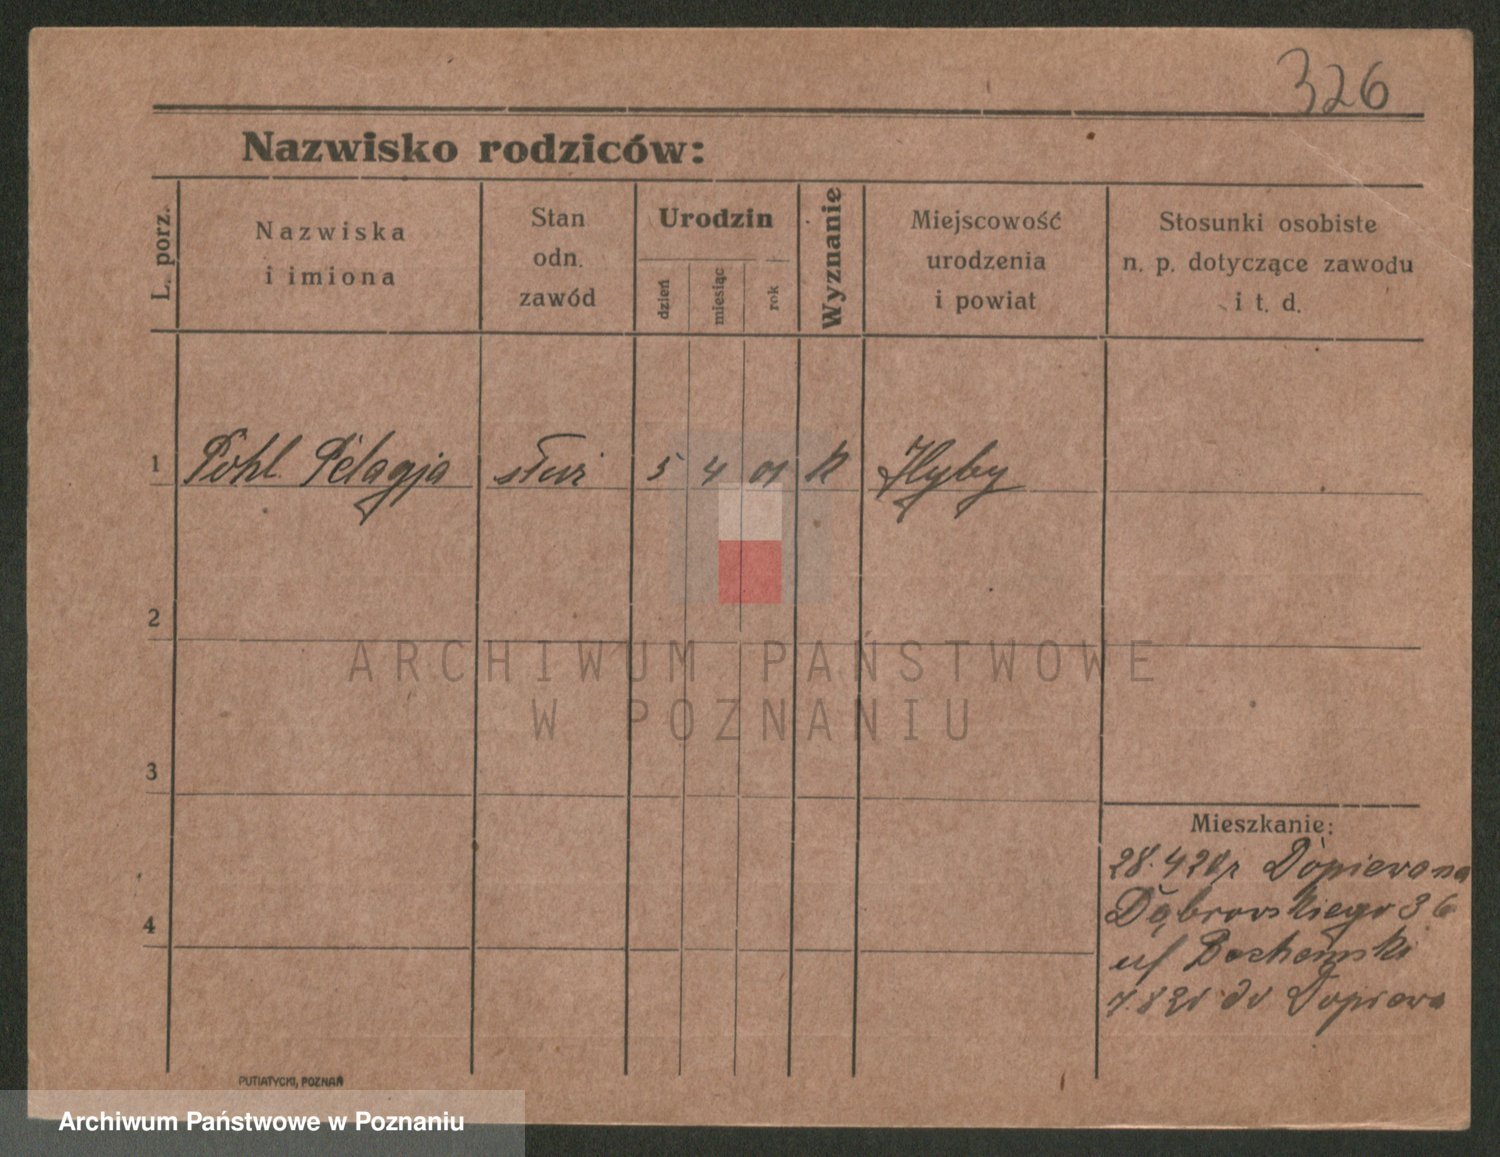 326
Nazwisko rodziców:
L. porz.
Nazwiska
i imiona
Stan
odn.
zawód
Urodzin
dzień
miesiąc
rok
Wyznanie
Miejscowość
urodzenia
i powiat
Stosunki osobiste
n. p. dotyczące zawodu
i t. d.
1 Pohl Pelagja służ 5 4 01 k
2
ARCHIWUM PAŃSTWOWE
W POZNANIU
3
Mieszkanie:
28.4 Dopiewa na
Dąbrowskiego 36
4
do Dopiewa
PUTIATYCKI, POZNAŃ
Archiwum Państwowe w Poznaniu